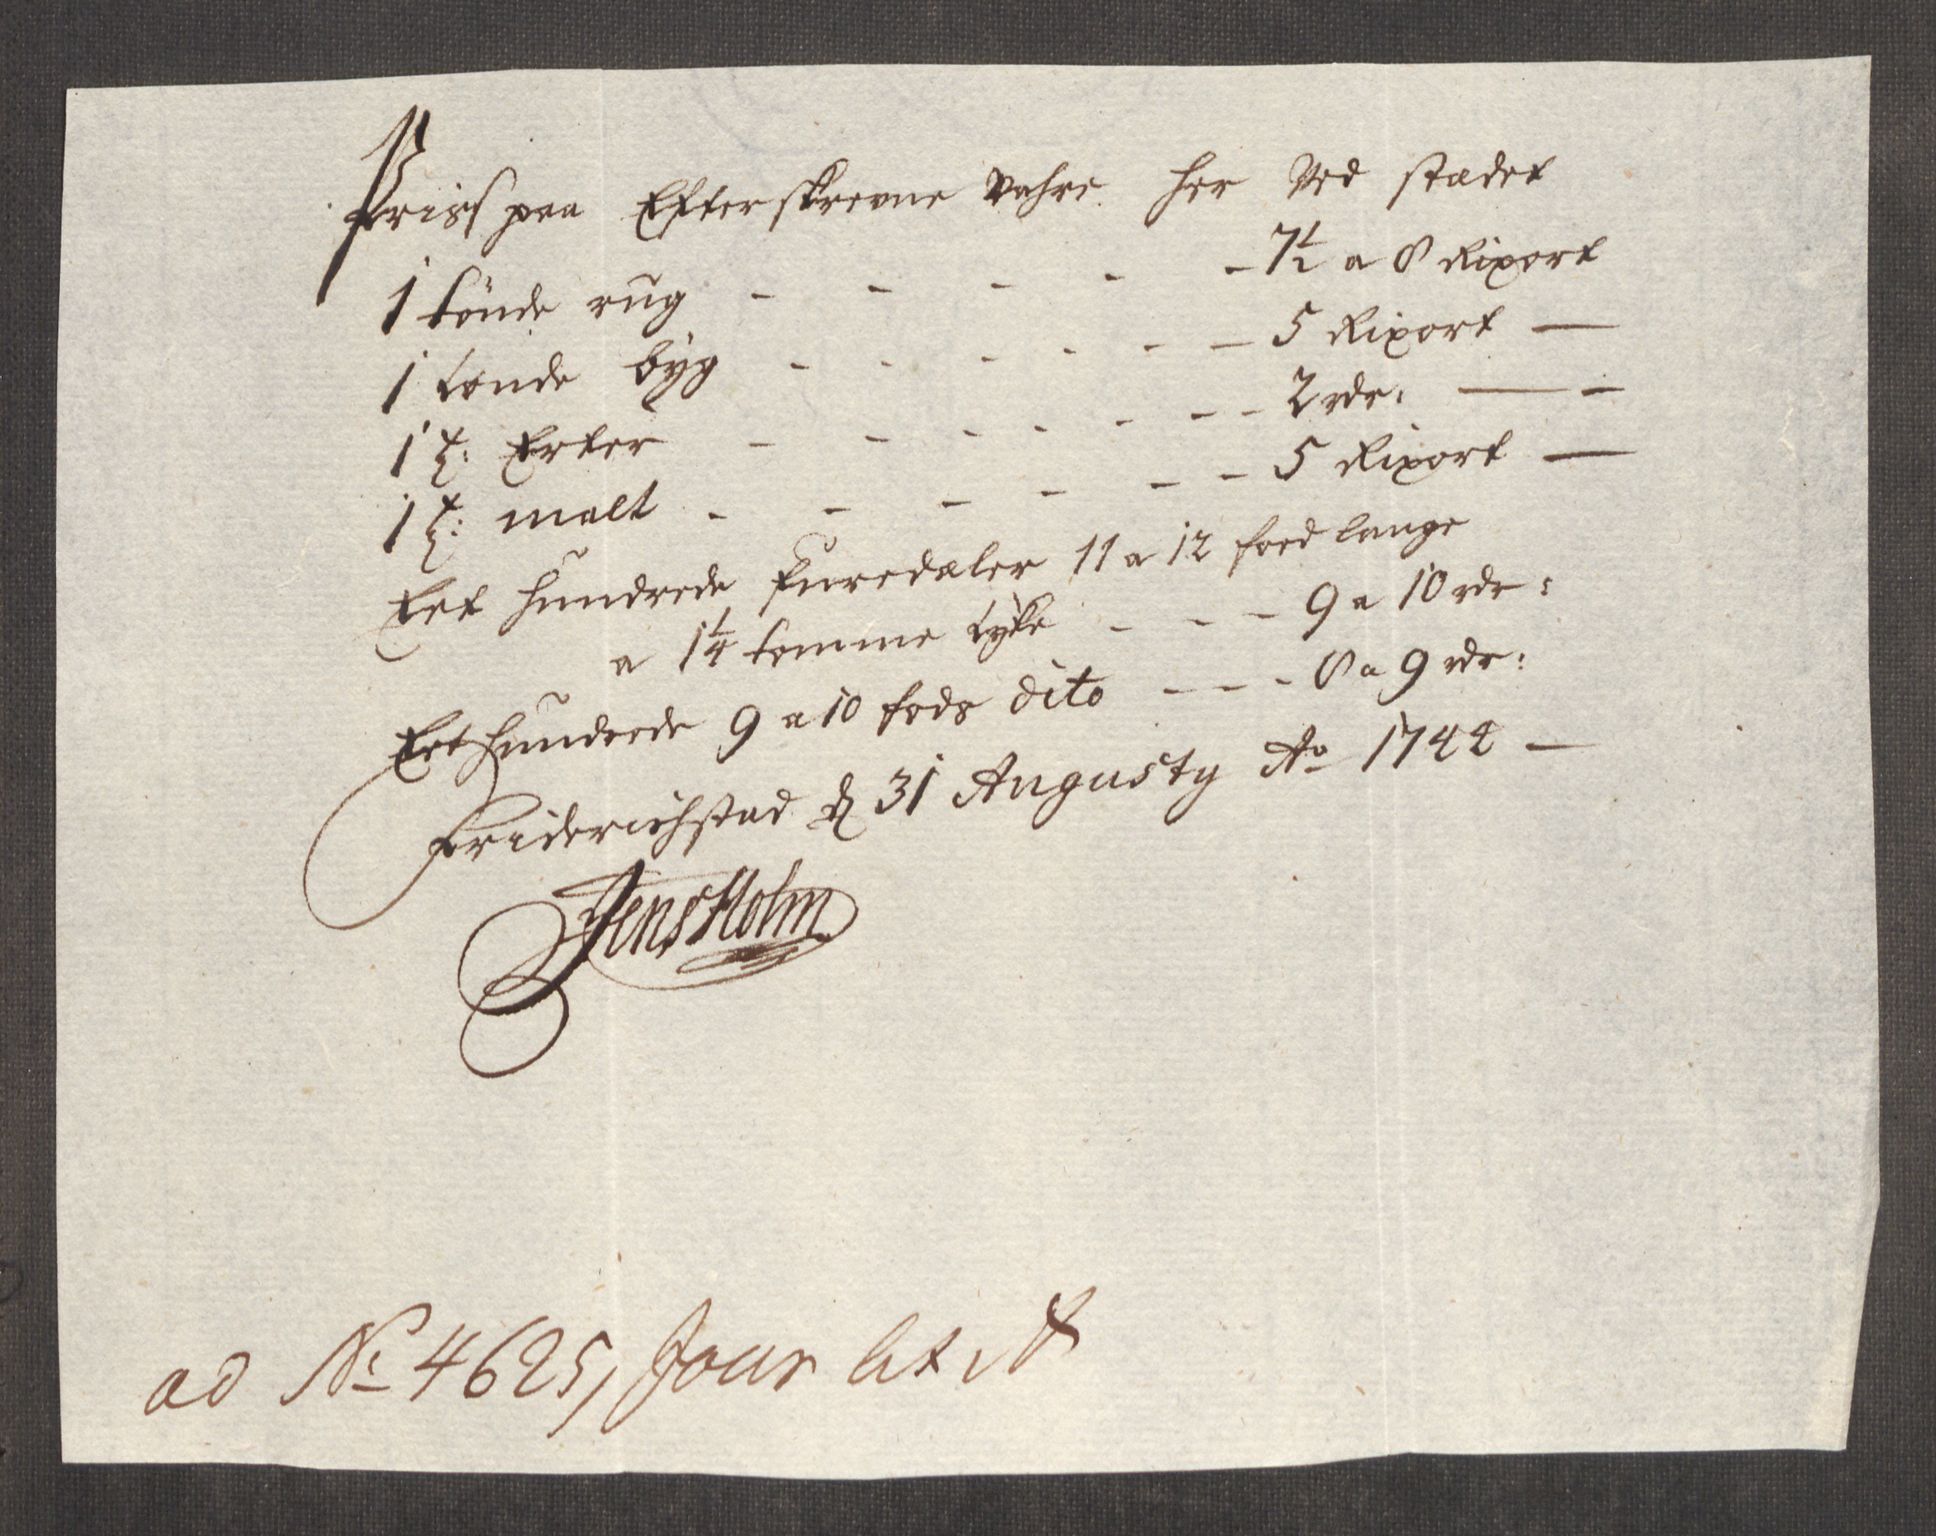 Priss paa Efterskrevne Vahre her Ved stædet
1 tönde rug - - - - - 7½ a 8 Rixort
1 tonde byg - - - - - - 5 Rixort —
1 t: Erter - - - - - - - 2 rdr: — -
1 t: malt - - - - - - 5 Rixort —
Eet hundrede furedæler 11 a 12 foed lange
a 1¼ tomme tyke - - - 9 a 10 rdr:
Eet hundrede 9 a 10 fods dito - - - 8 a 9 rdr:
Friderichstad d 31 Augusty Ao 1744 —
Jens Holm
ad No 4625, Jour lit